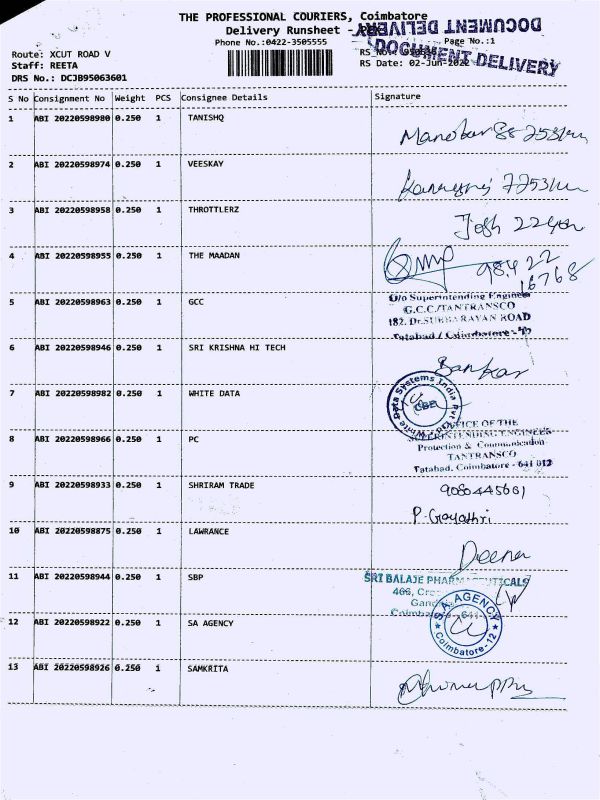 THE PROFESSIONAL COURIERS, Coimbatore
DOCUMENT DELIVERY
Delivery Runsheet -
Phone No.:0422-3505555
Page No.:1
DOCUMENT DELIVERY
Route: XCUT ROAD V
RS No.:
Staff: REETA
RS Date: 02-Jun-2022
DRS No.: DCJB95063601
S No Consignment No Weight PCS Consignee Details Signature
1 ABI 20220598980 0.250 1 TANISHQ
2 ABI 20220598974 0.250 1 VEESKAY
3 ABI 20220598958 0.250 1 THROTTLERZ
Josh
4 ABI 20220598955 0.250 1 THE MAADAN
98422
16768
5 ABI 20220598963 0.250 1 GCC
O/o Superintending Engineer
G.C.C/TANTRANSCO
182. Dr.SUBBARAYAN ROAD
Tatabad / Coimbatore - 12
6 ABI 20220598946 0.250 1 SRI KRISHNA HI TECH
Sankar
7 ABI 20220598982 0.250 1 WHITE DATA
White Data Systems India Pvt
CBE
8 ABI 20220598966 0.250 1 PC
OFFICE OF THE
SUPERINTENDING ENGINEER
Protection & Communication
TANTRANSCO
Tatabad, Coimbatore - 641 012
9 ABI 20220598933 0.250 1 SHRIRAM TRADE
P. Gayathri
10 ABI 20220598875 0.250 1 LAWRANCE
Deena
11 ABI 20220598944 0.250 1 SBP
SRI BALAJE PHARMACEUTICALS
12 ABI 20220598922 0.250 1 SA AGENCY
S.A. AGENCY
Coimbatore-12
13 ABI 20220598926 0.250 1 SAMKRITA